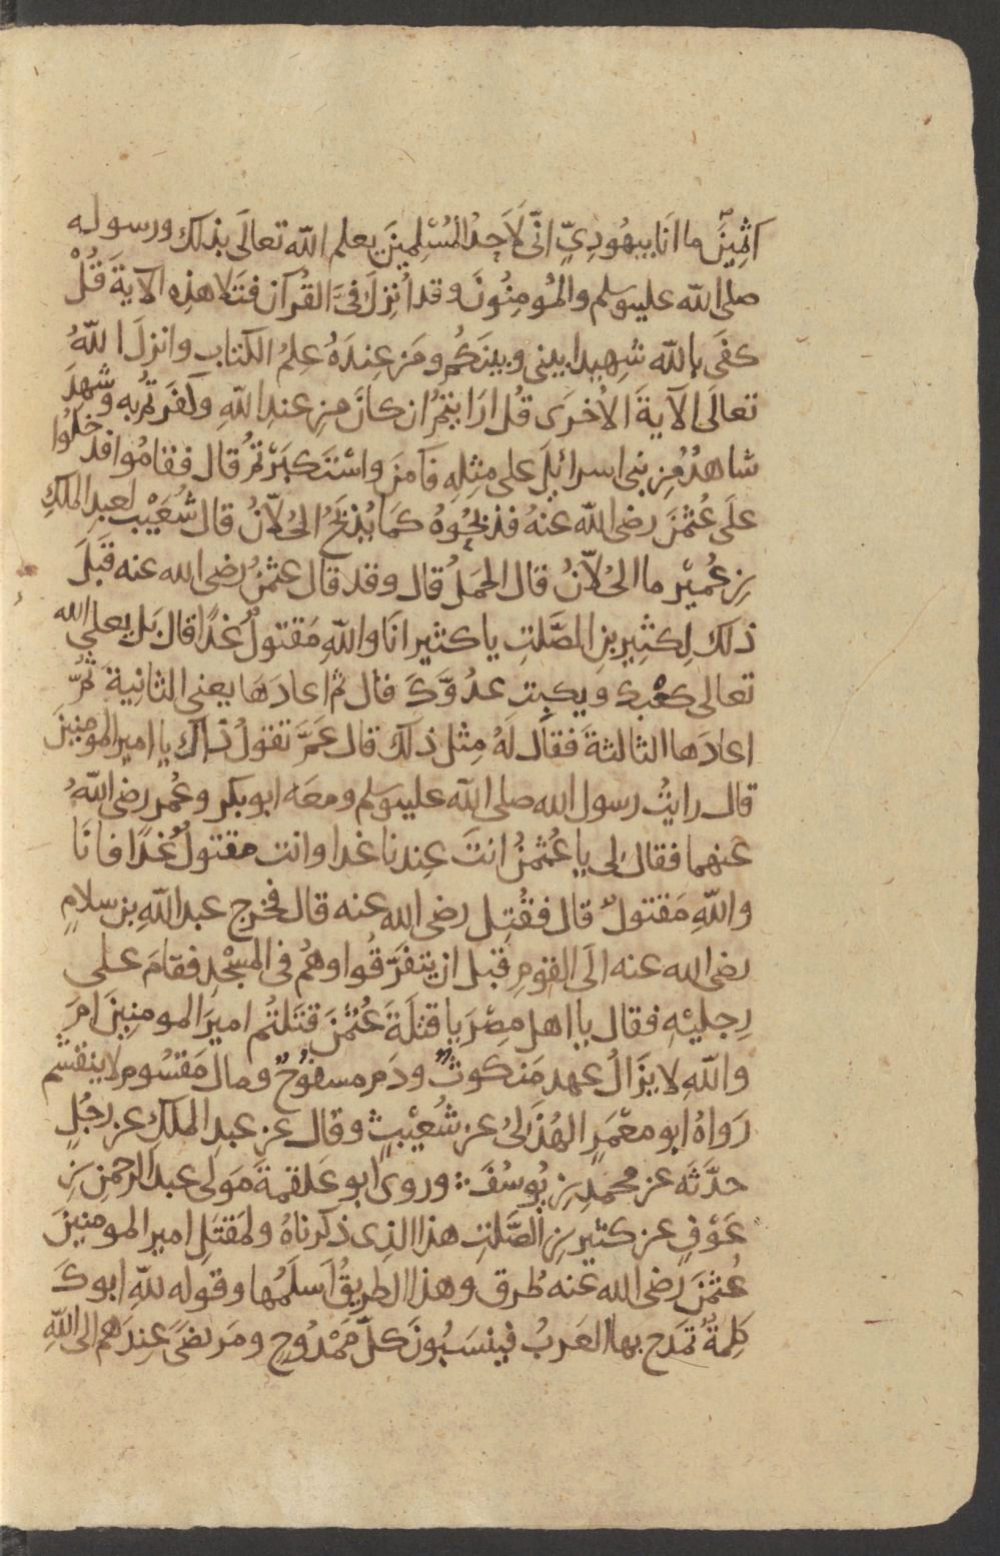 آثمين ما انا بيهودىٍّ انّى لَاَحَدُ المُسْلِمينَ يعلم الله تعالَى بذلك ورسوله
صلى الله عليه وسلم والمُومِنُونَ وقد اُنْزِلَ فىَّ القُرآن فتَلا هذِه الآيةَ قُلْ
كفَى بالله شهِيدا بينى وبينَكُم ومَن عِندَهُ عِلمُ الكتابِ وانزلَ اللّهُ
تعالَى الآيةَ الاُخرَى قُل ارَايتمُ ان كانَ مِن عندِ اللّهِ وكفَرتُم به وشَهِدَ
شاهدٌ مِن بنى اسرائيلَ على مِثلِهِ فآمَنَ واسْتَكبَرْتمُ قال فقامُوا فدخلُوا
علَى عُثمٰنَ رضى اللّه عنهُ فذبحُوهُ كمَا يُذبَحُ الحُلّانُ قال شُعَيْب لعبد الملكِ
بنِ عُمَيْر ما الحُلّانُ قال الحمَلُ قال وقد قال عثمٰنُ رضى الله عنه قَبلَ
ذلك لِكثِيرِ بن الصَّلتِ يا كثير انَا واللّهِ مَقتولٌ غدًا قال بَل يعلى الله
تعالى كعْبكَ ويكبِت عدُوَّكَ قال ثم اعادَهَا يعنى الثانيةَ ثمَّ
اعادَها الثالثةَ فقال لَهُ مِثل ذلكَ قال عَمَّ تقولُ ذاكَ يا امير المومنِينَ
قال رايتُ رسول الله صلى الله عليه وسلم ومعَه ابو بكر وعُمر رضى اللّهُ
عنهما فقال لى يا عُثمٰنُ انتَ عِندنا غدا وانت مقتولٌ غدًا فانَا
واللّهِ مَقتولٌ قال فقُتِل رضى الله عنه قال فخرج عبد اللّهِ بن سلامٍ
رضى الله عنه الَى القومِ قبل ان يتفرَّقُوا وهُم فى المسْجِدِ فقامَ على
رِجليْهِ فقال يا اهل مِصْرَ يا قتلَةَ عُثمٰنَ قتَلتُم اميرَ المومنِينَ امَ
واللّهِ لا يزَالُ عهد مَنكوثٌ ودَم مسفوحٌ ومال مَقسُوم لا ينقسَم
رَواهُ ابو معْمَرٍ الهُذَلىُّ عن شُعَيْبٍ وقال عن عبدِ الملكِ عن رجُلٍ
حدّثَه عن محمدِ بنِ يُوسُفَ وروى ابو عَلقمةَ مَولى عبد الرحمٰنِ بنِ
عَوْفٍ عن كثيرِ بنِ الصَّلتِ هذا الذِى ذكَرناهُ ولمَقتَلِ امير المومنِينَ
عُثمٰنَ رضى الله عنه طُرق وهذا الطريقُ اَسلَمُها وقوله للّهِ ابوكَ
كلِمةٌ تَمدَح بها العَرَبُ فينسَبُونَ كلّ مَمْدُوحٍ ومَرضىً عِندَهم الى اللّهِ